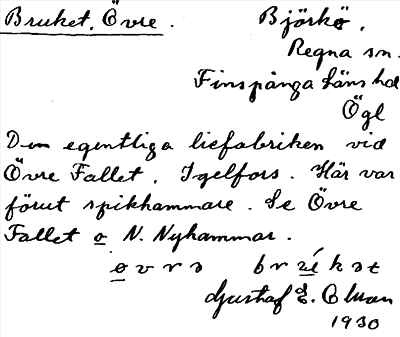 Bruket, Övre. Björkö,
Regna sn.
Finspånga läns hd
Ögl
Den egentliga liefabriken vid
Övre Fallet, Igelfors. Här var
förut spikhammare. Se Övre
Fallet o N. Nyhammar.
øvrə
Gustaf
1930